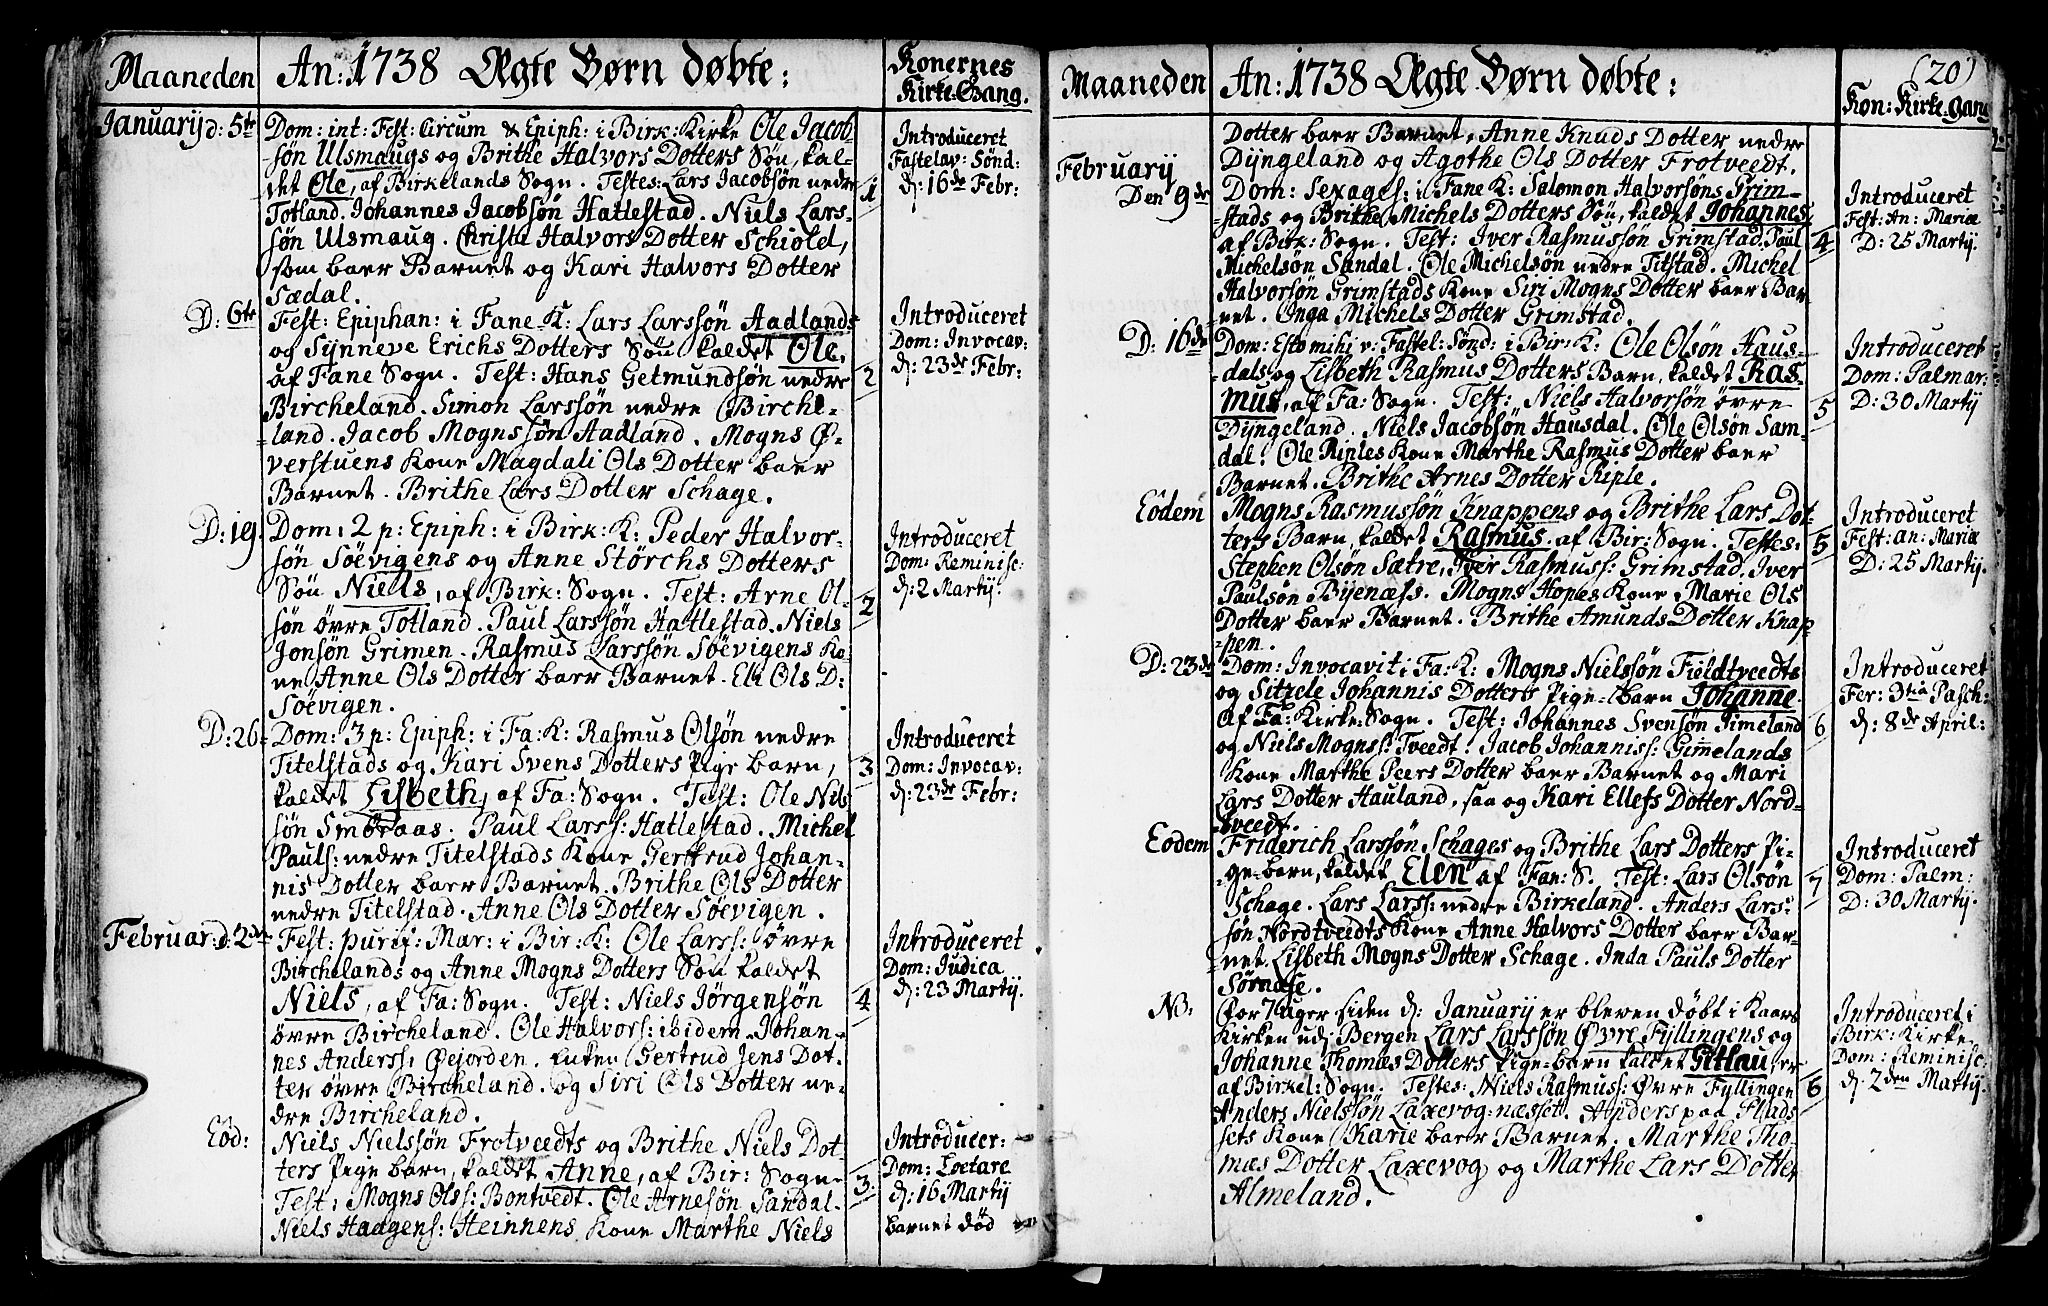 Maaneden
An: 1738 Ægte Børn døbte:
Konernes
Kirke-Gang.
Januarij d: 5te
Dom: int: Fest: Circum & Epiph: i Birk: Kirke Ole Jacob-
-søn Ulsmaugs og Brithe Halvors Dotters Søn, kal-
det Ole, af Birkelands Sogn. Testes: Lars Jacobsøn nedre
Totland. Johannes Jacobsøn Hatlestad. Niels Lars-
søn Ulsmaug. Christe Halvors Dotter Schiold,
som baer Barnet og Kari Halvors Dotter
Sædal.
1
Introduceret
Fastelav: Sønd:
d: 16de Febr:
D: 6te
Fest: Epiphan: i Fane K: Lars Larssøn Aadlands
og Synneve Erichs Dotters Søn kaldet Ole,
af Fane Sogn. Test: Hans Getmundsøn nedre
Bircheland. Simon Larssøn nedre Birche-
-land. Jacob Mognssøn Aadland. Mogns Ø-
verstuens Kone Magdali Ols Dotter baer
Barnet. Brithe Lars Dotter Schage.
2
Introduceret
Dom: Invocav:
d: 23de Febr:
D: 19.
Dom: 2 p: Epiph: i Birk: K: Peder Halvor-
søn Søevigens og Anne Störchs Dotters
Søn Niels, af Birk: Sogn. Test: Arne Ol-
søn øvre Totland. Paul Larssøn Hatlestad. Niels
Jonsøn Grimen. Rasmus Larssøn Søevigens Ko-
ne Anne Ols Dotter baer Barnet. Eli Ols D:
Søevigen.
2
Introduceret
Dom: Reminisc:
d: 2 Martij.
D: 26
Dom: 3 p: Epiph: i Fa: K: Rasmus Olsøn nedre
Titelstads og Kari Svens Dotters Pige barn,
kaldet Lisbeth, af Fa: Sogn. Test: Ole Nils
søn Smøraas. Paul Larss: Hatlestad. Michel
Pauls: nedre Titelstads Kone Gertrud Johan-
nis Dotter baer Barnet. Brithe Ols Dotter
nedre Titelstad. Anne Ols Dotter Søevigen.
3
Introduceret
Dom: Invocav:
d: 23de Febr:
Februar: d: 2den
Fest: purif: Mar: i Bir: K: Ole Larss: øvre
Birchelands og Anne Mogns Dotters Søn kaldet
Niels, af Fa: Sogn. Test: Niels Jørgensøn
øvre Bircheland. Ole Halvors: ibidem. Johan-
nes Anderss: Øejorden. Enken Gertrud Jens Dot-
ter øvre Bircheland. og Siri Ols Dotter ne-
dre Bircheland.
4
Introduceret
Dom: Judica
d: 23 Martij.
Eod:
Niels Nielssøn Frotveedts og Brithe Niels Dot-
ters Pige barn, kaldet Anne, af Bir: Sogn.
Test: Mogns Olss: Bontvedt. Ole Arnesøn Sandal.
Niels Haagens: Heinnens Kone Marthe Niels
3
Introducer:
Dom: Loetare
d: 16 Martij
barnet død
Maaneden
An: 1738 Ægte Børn døbte:
(20)
Kon: Kirke-gang
Dotter baer Barnet. Anne Knuds Dotter nedre
Dyngeland og Agothe Ols Dotter Frotveedt.
Februarij
Den 9de
Dom: Sexages: i Fane K: Salomon Halvorsøns Grim-
-stads og Brithe Michels Dotters Søn, kaldet Johannes,
af Birk: Sogn. Test: Iver Rasmussøn Grimstad. Paul
Michelsøn Sandal. Ole Michelsøn nedre Titstad. Michel
Halvorsøn Grimstads Kone Siri Mogns Dotter baer Bar-
net. Onga Michels Dotter Grimstad.
4
Introduceret
Fest: An: Mariæ
D: 25 Martij.
D: 16de
Dom: Estomihi v: Fastel: Sønd: i Bir: K: Ole Olsøn Haus-
-dals og Lisbeth Rasmus Dotters Barn, kaldet Ras-
mus, af Fa: Sogn. Test: Niels Halvorsøn øvre
Dyngeland. Niels Jacobsøn Hausdal. Ole Olsøn Sam-
dal. Ole Riples Kone Marthe Rasmus Dotter baer
Barnet. Brithe Arnes Dotter Riple.
5
Introduceret
Dom: Palmar:
D: 30 Martij
Eodem
Mogns Rasmussøn Knappens og Brithe Lars Dot-
ters Barn, kaldet Rasmus. af Bir: Sogn. Testes:
Stephen Olsøn Sætre, Iver Rasmuss: Grimstad. Iver
Paulsøn Byenæss. Mogns Hopes Kone Marie Ols
Dotter baer Barnet. Brithe Amunds Dotter Knap-
-pen.
5
Introduceret
Fest: an: Mariæ
D: 25 Martij.
D: 23de
Dom: Invocavit i Fa: K: Mogns Nielssøn Fieldtveedts
og Sitzele Johannis Dotters Pige-barn Johanne.
af Fa: Kirke: Sogn. Test: Johannes Svensøn Gimeland
og Niels Mognss: Tveedt. Jacob Johanniss: Gimelands
Kone Marthe Peers Dotter baer Barnet og Mari
Lars Dotter Hauland, saa og Kari Ellefs Dotter Nord-
tveedt.
6
Introduceret
Fer: 3tia Pasch:
d: 8de April:
Eodem
Friderich Larssøn Schages og Brithe Lars Dotters Pi-
-ge-barn, kaldet Elen af Fan: S. Test: Lars Olson
Schage. Lars Larss: nedre Birkeland. Anders Lars-
søn Nordtveedts Kone Anne Halvors Dotter baer Bar-
net. Lisbeth Mogns Dotter Schage. Inda Pauls Dotter
Sørnæse.
7
Introduceret
Dom: Palm:
D: 30 Martij.
NB:
For 7 uger siden d: Januarij er bleven døbt i Kaars
Kirken ud: Bergen Lars Larssøn Øvre Fyllingens og
Johanne Thomæs Dotters Pige-barn kaldet Atlau, er
af Birkel: Sogn. Testes: Niels Rasmuss: Øvre Fyllingen
Anders Nielssøn Laxevog-næsset. Anders paa Plads
sets Kone Karie baer Barnet. Marthe Tho-
mæs Dotter Laxevog og Marthe Lars Dotter
Almeland.
6
Introduceret i
Birk: Kirke,
Dom: Reminisc
d: 2den Martij.